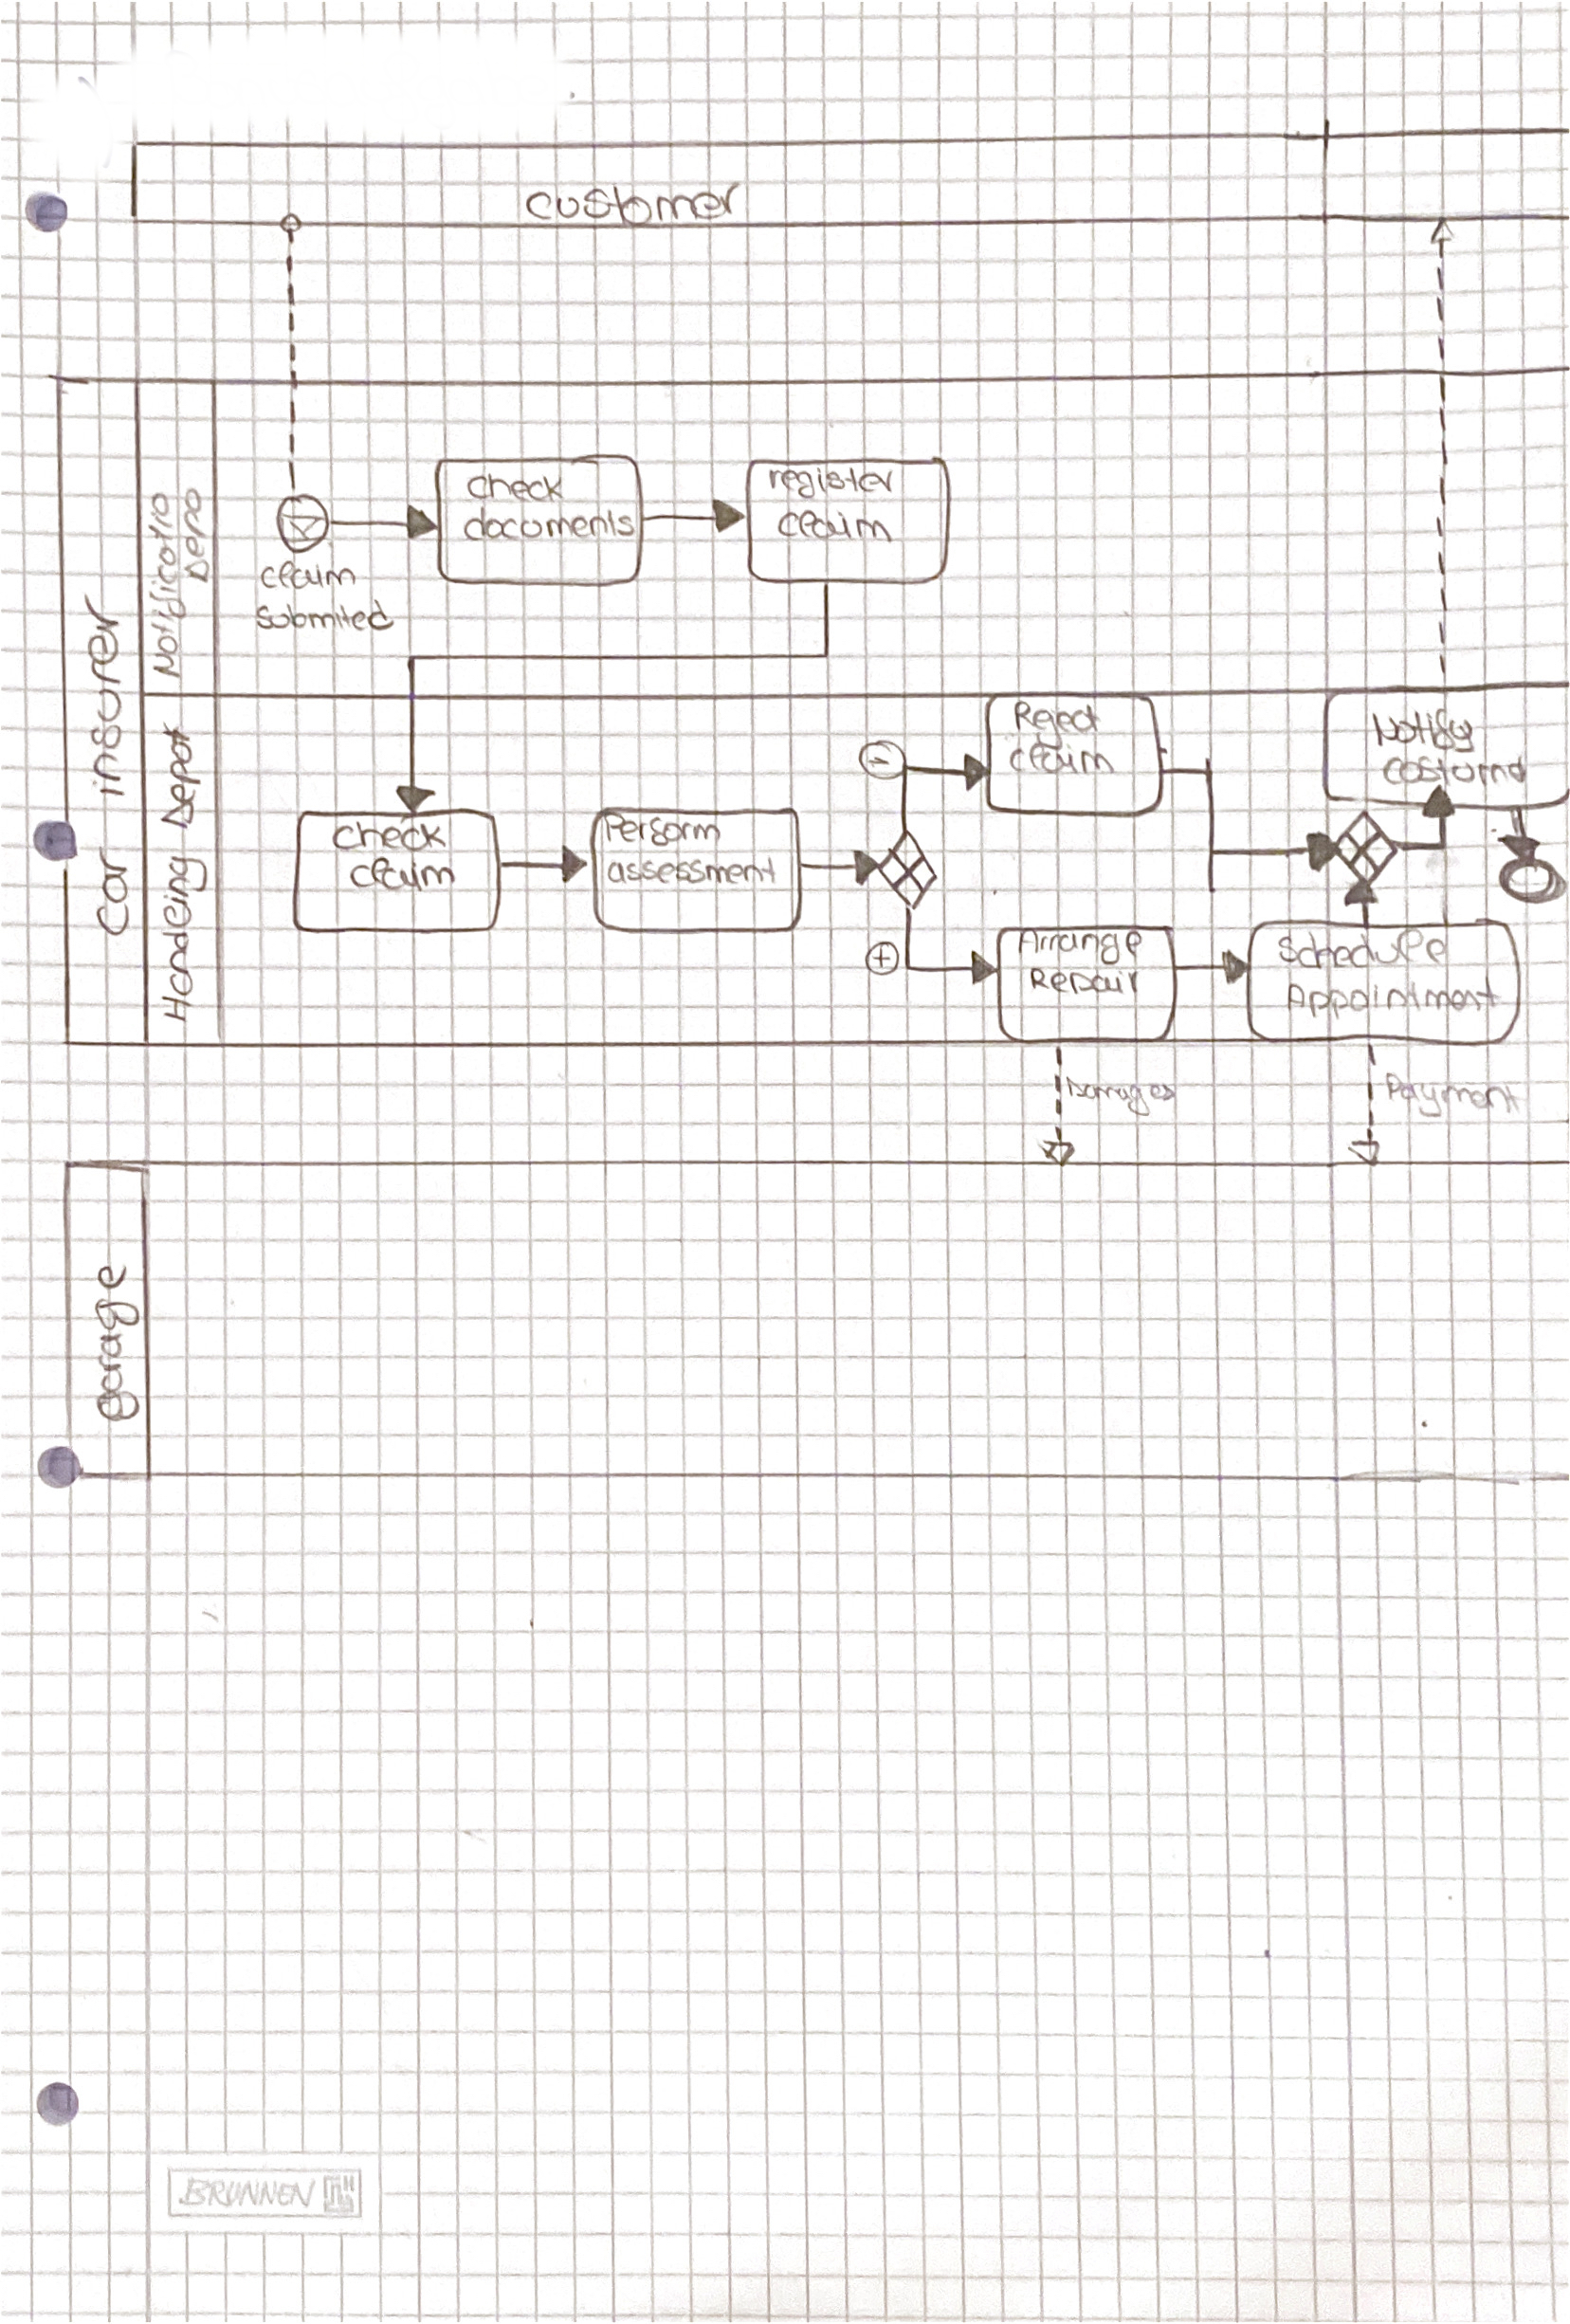 customer
car insurer
Notificatio
Depo
claim
submited
check
documents
register
claim
Handling Depot
check
claim
Perform
assessment
-
+
Reject
claim
Arrange
Repair
Schedule
Appointment
Notify
costume
Damages
Payment
garage
BRUNNEN